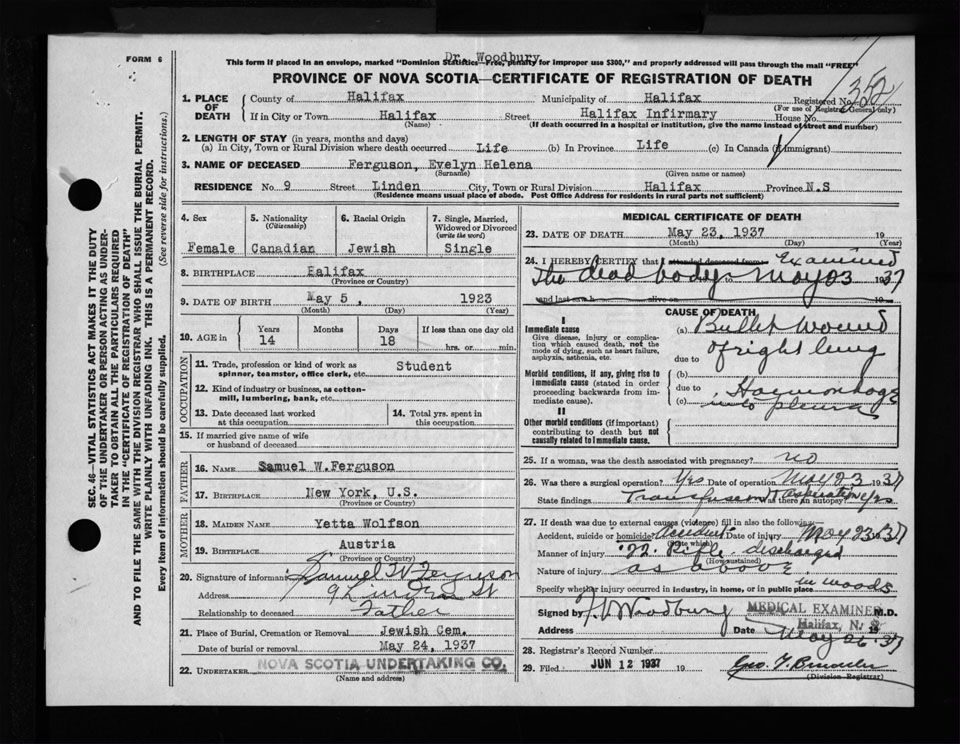 Dr. Woodbury
FORM 6
This form if placed in an envelope, marked "Dominion Statistics—Free, penalty for improper use $300," and properly addressed will pass through the mail "FREE"
PROVINCE OF NOVA SCOTIA—CERTIFICATE OF REGISTRATION OF DEATH
SEC. 46—VITAL STATISTICS ACT MAKES IT THE DUTY
OF THE UNDERTAKER OR PERSON ACTING AS UNDER-
TAKER TO OBTAIN ALL THE PARTICULARS REQUIRED
IN THE "CERTIFICATE OF REGISTRATION OF DEATH"
AND TO FILE THE SAME WITH THE DIVISION REGISTRAR WHO SHALL ISSUE THE BURIAL PERMIT.
WRITE PLAINLY WITH UNFADING INK. THIS IS A PERMANENT RECORD.
Every item of information should be carefully supplied. (See reverse side for instructions.)
1. PLACE OF DEATH
County of Halifax Municipality of Halifax Registered No.
(For use of Registrar General only)
If in City or Town Halifax Street Halifax Infirmary House No.
(Name) (If death occurred in a hospital or institution, give the name instead of street and number)
2. LENGTH OF STAY (in years, months and days)
(a) In City, Town or Rural Division where death occurred Life (b) In Province Life (c) In Canada (if immigrant)
3. NAME OF DECEASED Ferguson, Evelyn Helena
(Surname) (Given name or names)
RESIDENCE No. 9 Street Linden City, Town or Rural Division Halifax Province N.S
(Residence means usual place of abode. Post Office Address for residents in rural parts not sufficient)
4. Sex Female
5. Nationality (Citizenship) Canadian
6. Racial Origin Jewish
7. Single, Married, Widowed or Divorced (write the word) Single
8. BIRTHPLACE Halifax
(Province or Country)
9. DATE OF BIRTH May 5, 1923
(Month) (Day) (Year)
10. AGE in Years 14 Months Days 18 If less than one day old hrs. or min.
OCCUPATION
11. Trade, profession or kind of work as spinner, teamster, office clerk, etc. Student
12. Kind of industry or business, as cotton-mill, lumbering, bank, etc.
13. Date deceased last worked at this occupation
14. Total yrs. spent in this occupation
15. If married give name of wife or husband of deceased
FATHER
16. NAME Samuel W. Ferguson
17. BIRTHPLACE New York, U.S.
(Province or Country)
MOTHER
18. MAIDEN NAME Yetta Wolfson
19. BIRTHPLACE Austria
(Province or Country)
20. Signature of informant Samuel W Ferguson
Address 9 Linden St
Relationship to deceased Father
21. Place of Burial, Cremation or Removal Jewish Cem.
Date of burial or removal May 24, 1937
22. UNDERTAKER NOVA SCOTIA UNDERTAKING CO.
(Name and address)
MEDICAL CERTIFICATE OF DEATH
23. DATE OF DEATH May 23, 1937 19
(Month) (Day) (Year)
24. I HEREBY CERTIFY that I attended deceased from Examined
The dead body May 23 1937
and last saw h alive on 19
CAUSE OF DEATH
I
Immediate cause
Give disease, injury or complica-
tion which caused death, not the
mode of dying, such as heart failure,
asphyxia, asthenia, etc.
(a) Bullet wound
of right lung
due to
Morbid conditions, if any, giving rise to
immediate cause (stated in order
proceeding backwards from im-
mediate cause).
(b)
due to Haemorrhage
(c) into pleura
II
Other morbid conditions (if important)
contributing to death but not
causally related to immediate cause.
25. If a woman, was the death associated with pregnancy? no
26. Was there a surgical operation? Yes Date of operation May 23 1937
State findings Transfusion & aspiration Was there an autopsy? yes
27. If death was due to external causes (violence) fill in also the following:—
Accident, suicide or homicide? Accident Date of injury May 23 1937
(State which)
Manner of injury .22 Rifle discharged
(How sustained)
Nature of injury as above
Specify whether injury occurred in industry, in home, or in public place in woods
Signed by Woodbury MEDICAL EXAMINER M.D.
Halifax, N. S
Address Date May 26 1937
28. Registrar's Record Number
29. Filed JUN 12 1937 19
(Division Registrar)